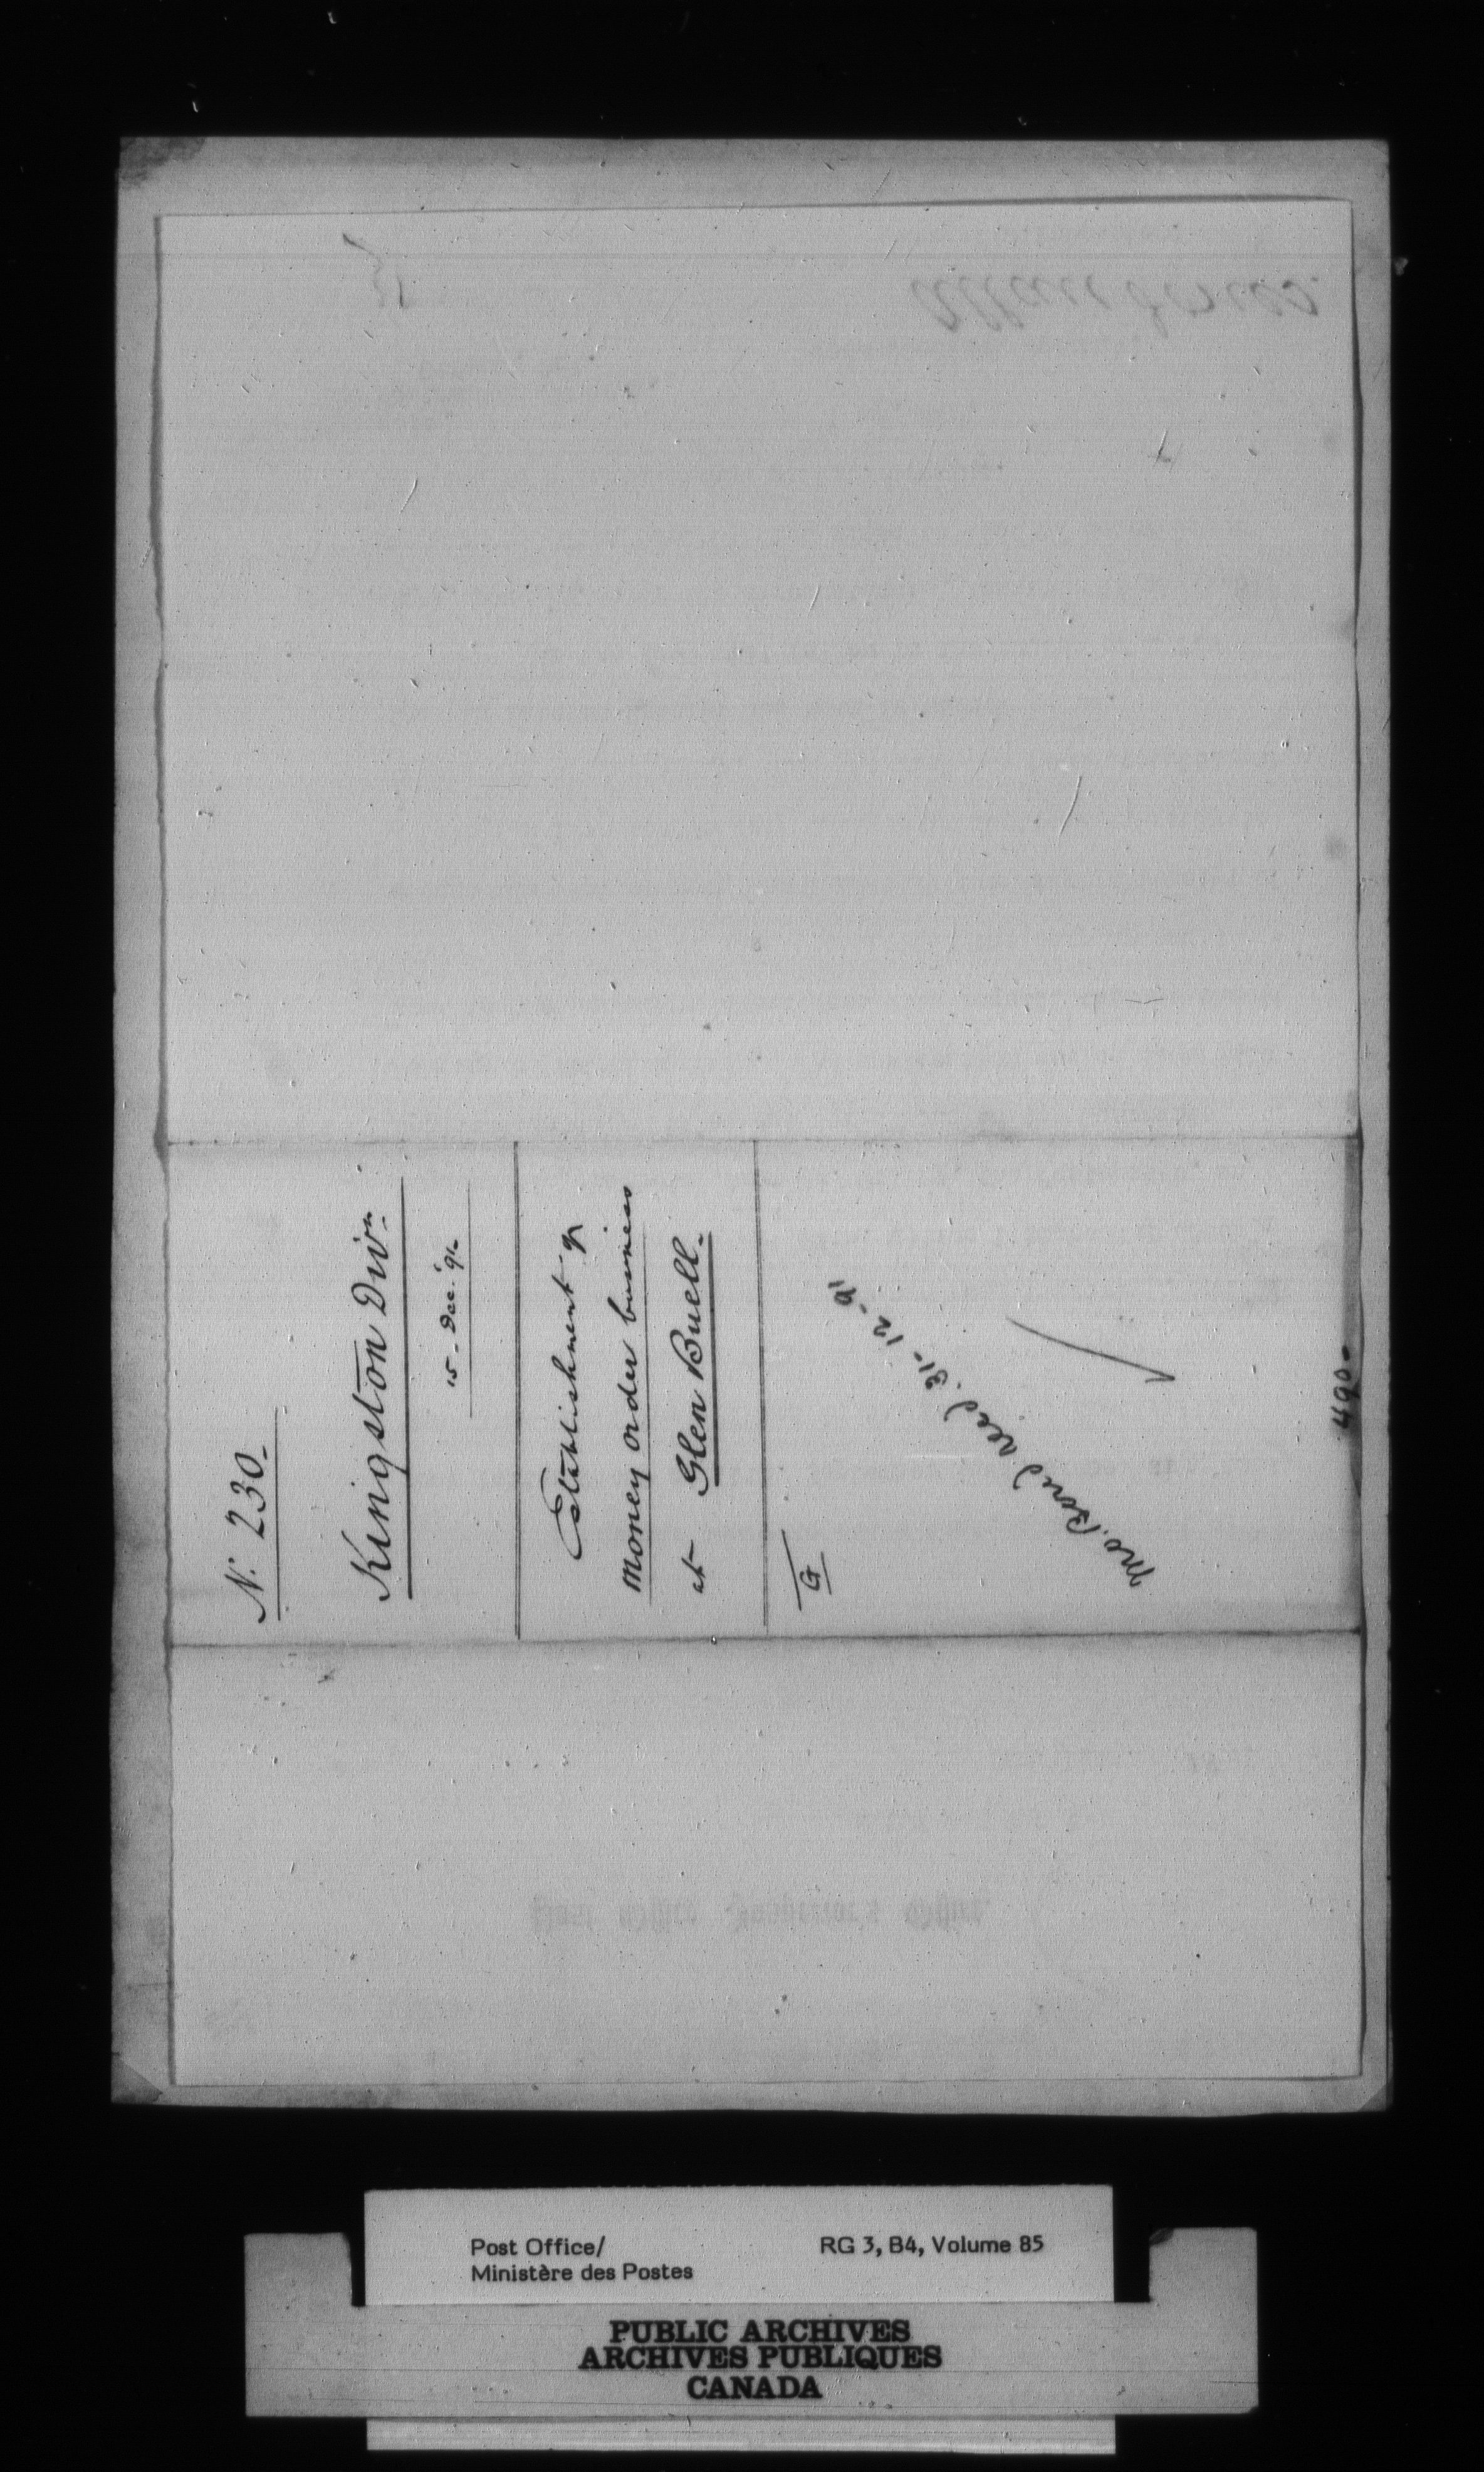 N. 230
Kingston Divn.
15 - Dec. '91.
Establishment of
Money order business
at Glen Buell.
G
M.O. Bond recd. 31-12-91
490-
Post Office Inspector's Office
Post Office/
Ministère des Postes
RG 3, B4, Volume 85
PUBLIC ARCHIVES
ARCHIVES PUBLIQUES
CANADA